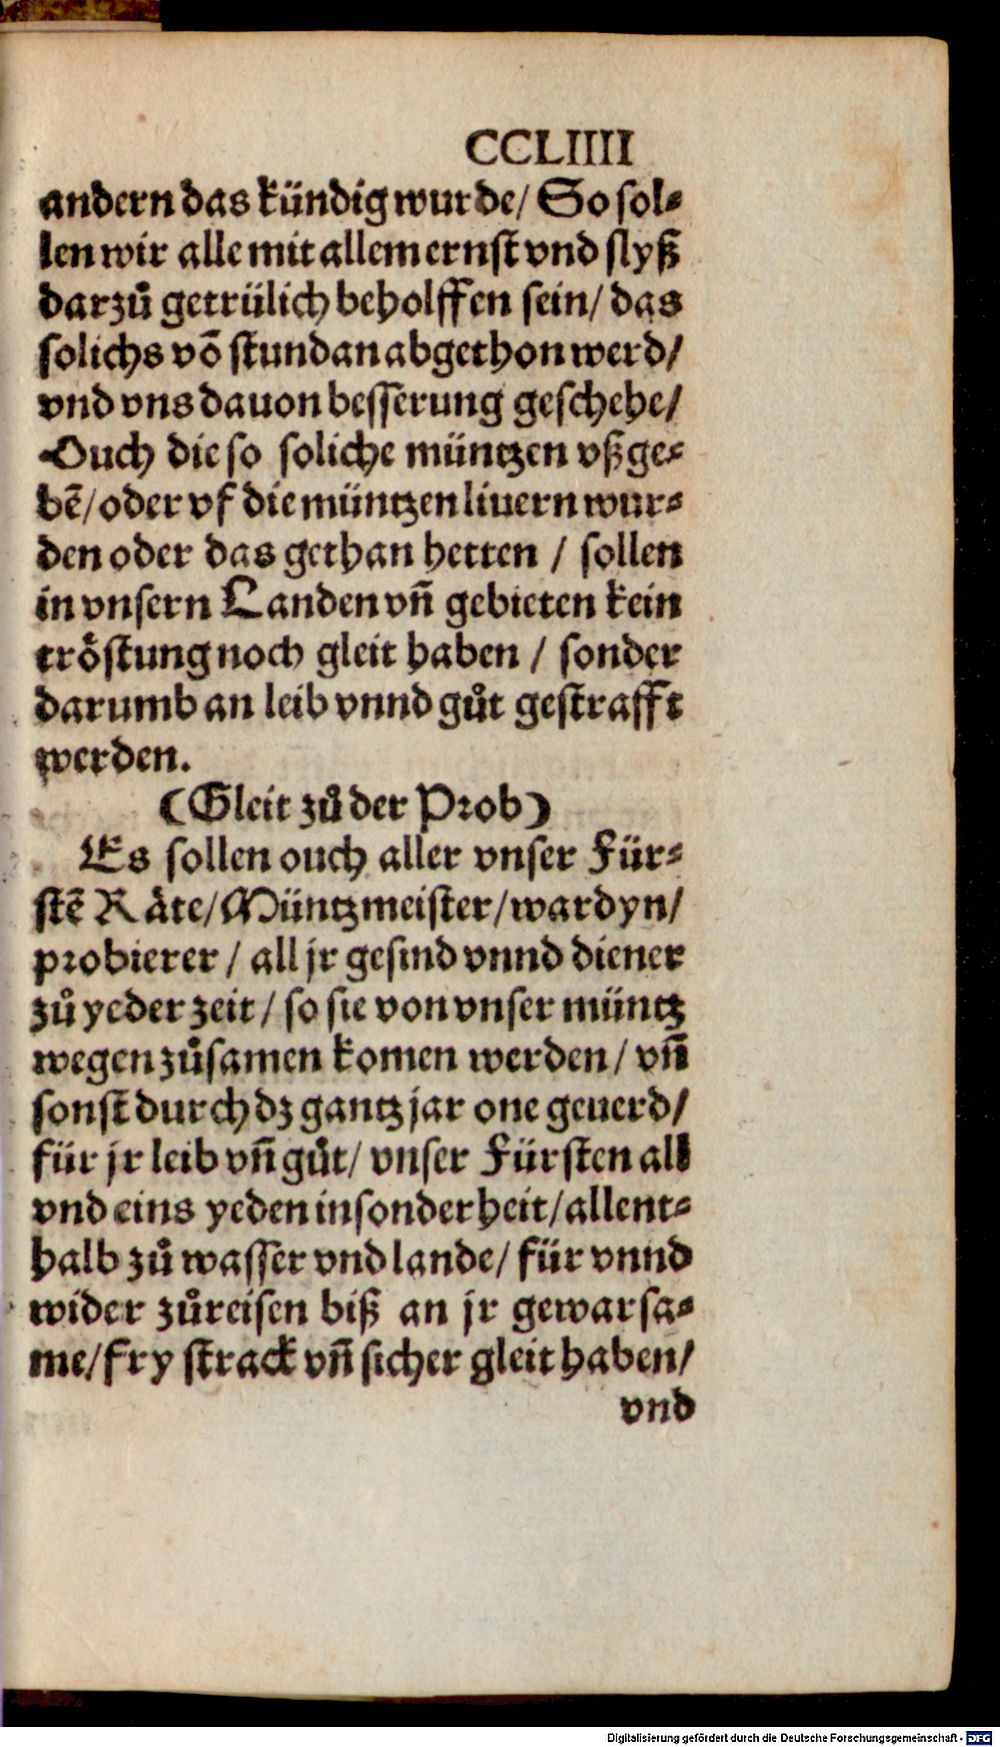 CCLIIII
andern das kündig wurde/ So sol⸗
len wir alle mit allem ernst vnd flyß
darzů getrülich beholffen sein/ das
solichs vō stundan abgethon werd/
vnd vns dauon besserung geschehe/
Ouch die so soliche müntzen vßge⸗
bē/ oder vf die müntzen liuern wur⸗
den oder das gethan hetten / sollen
in vnsern Landen vñ gebieten kein
tröstung noch gleit haben / sonder
darumb an leib vnnd gůt gestrafft
werden.
(Gleit zů der Prob)
Es sollen ouch aller vnser Für⸗
stē Räte/ Müntzmeister/ wardyn/
probierer / all jr gesind vnnd diener
zů yeder zeit / so sie von vnser müntz
wegen zůsamen komen werden/ vñ
sonst durch dz gantz jar one geuerd/
für jr leib vñ gůt/ vnser Fürsten all
vnd eins yeden insonderheit/ allent⸗
halb zů wasser vnd lande/ für vnnd
wider zůreisen biß an jr gewarsa⸗
me/ fry strack vñ sicher gleit haben/
vnd
Digitalisierung gefördert durch die Deutsche Forschungsgemeinschaft - DFG